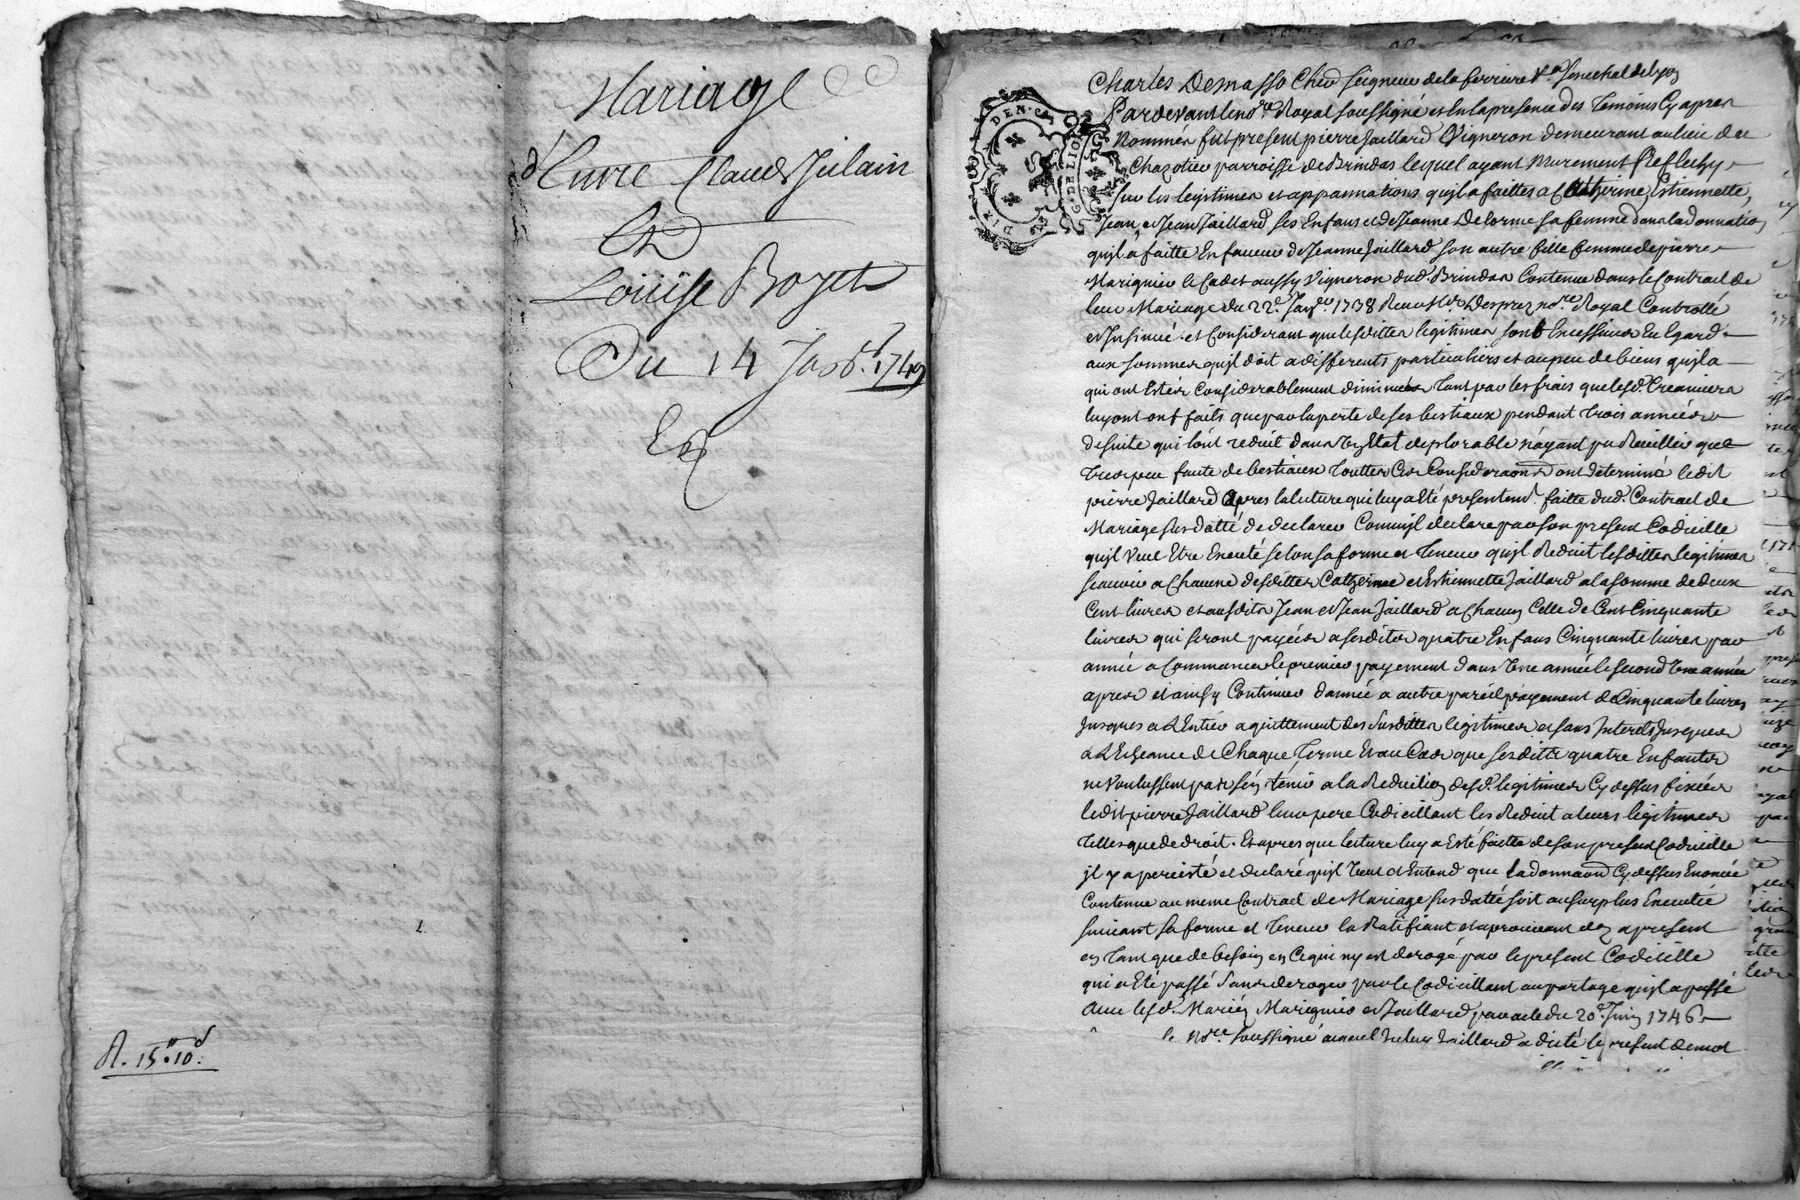 Mariage
d'Entre Claude Julain
Et
Louise Boyet
Du 14
1749
R. 15. 10.d
DEN. G. DE LION
Charles Demasso Cher seigneur de la ferriere senechal de lyon
Pardevant le nore Royal soussigné et En la presence des temoins Cy apres
Nommés fut present pierre Jaillard Vigneron demeurant au lieu de
Chazotier parroisse de Brindas lequel ayant Murement Reflechy
sur les legitimes et appannations qu'jl a faittes a Catherine, Estiennette,
Jean, et Jean Jaillard ses Enfans et de Jeanne Delorme sa femme dans la donnation
qujl a faitte En faveur de Jeanne Jaillard son autre fille femme de pierre
Marignier le Cadet aussy Vigneron dud. Brindas Contenue dans le Contract de
leur Mariage du 22e Janer 1738 Receu Mr Desprez nore Royal Controllé
et Insinué et Considerant que lesdittes legitimes sont Excessives Eu Egard
aux sommes qujl doit a differents particuliers et au peu de biens qujl a
qui ont Estés Considerablement diminués tant par les frais que lesd. Creanciers
luy ont faits que par la perte de ses bestiaux pendant trois années
de suite qui l'ont reduit dans Un Etat deplorable n'ayant pu Recuillir que
tres peu faute de bestiaux touttes Ces Consideraons ont determiné ledit
pierre Jaillard apres lalecture qui luy a Eté presentemt faitte dud. Contract de
Mariage susdatté de declarer Comm'jl declare par son present Codicille
qujl veut Etre Executé selon sa forme et teneur qujl Reduit lesdittes legitimes
scavoir a Chacune desdittes Catherine et Estiennette Jaillard a la somme de deux
Cent livres et ausdits Jean et Jean Jaillard a chacun Celle de Cent Cinquante
livres qui seront payées a sesdits quatre Enfans Cinquante livres par
année a Commancer le premier payement dans Une année le second Une année
apres et ainsy Continuer d'année a autre pareil payement de Cinquante livres
Jusques a l'Entier aquittement des susdittes legitimes et sans Interets Jusques
a l'Echeance de Chaque terme Et au Cas que sesdits quatre Enfants
ne Voulussent pas s'en tenir a la Reduction desd. legitimes Cy dessus fixées
ledit pierre Jaillard leur pere Codicillant les Reduit a leurs legitimes
telles que de droit. Et apres que lecture luy a Esté faitte de son present Codicille
jl y a persisté et declaré qujl Veut et Entend que la donnaon Cy dessus Enoncée
Contenue au meme Contract de Mariage susdatté soit au surplus Executée
suivant sa forme et teneur la Ratifiant et aprouvant des a present
en tant que de besoin en Ce qui n'y est derogé par le present Codicille
qui a Eté passé sans deroger par le Codicillant au partage qujl a passé
avec lesd. Mariés Marignier et Jaillard par acte du 20e Juin 1746
le Nore soussigné auquel Jaillard a dicté le present de mot